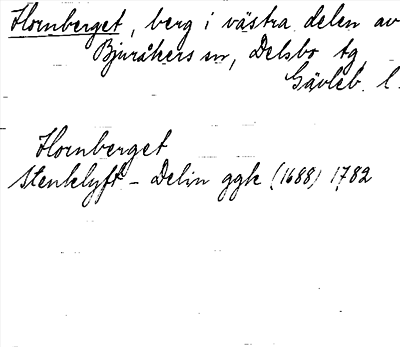 Hornberget, berg i västra delen av
Bjuråkers sn, Delsbo tg
Gävleb. l.
Hornberget
Stenklyft - Delin ggk (1688) 1782